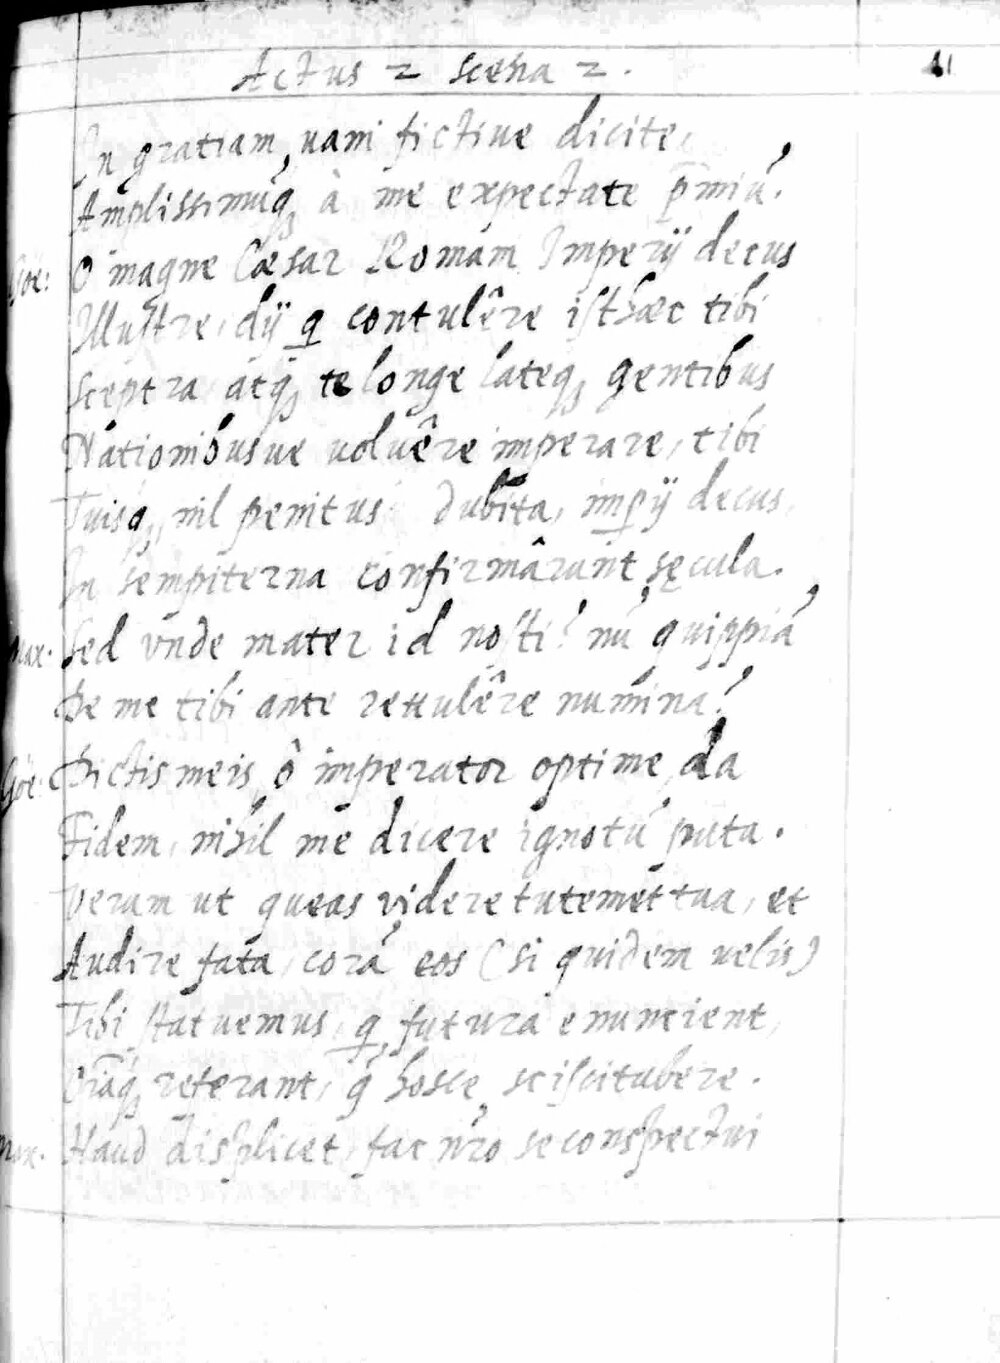 Actus 2 scena 2. 41
In gratiam, nam fictive dicite,
Amplissimūq; à me expectate p̄miū.
Goe: O magne Cæsar Romani Imperij decus
Illustre, dij q̱ contulêre isthæc tibi
Sceptra atq; te longe lateq; gentibus
Nationibusve voluêre imperare, tibi
Tuisq; nil penitus dubita, imp̱ij decus,
In sempiterna confirmârunt sęcula.
Max. Sed unde mater id nosti? nū quippiā
De me tibi ante retulêre numina?
Goe: Dictis meis, ô imperator optime, da
Fidem, nihil me dicere ignotū puta.
Verum ut queas videre tutemet tua, et
Audire fata, corā eos (si quidem velis)
Tibi statuemus, q̱ futura enuncient,
Oīaq; referant, q̄ hosce sciscitabere.
Max. Haud displicet, fac nr̄o se conspectui